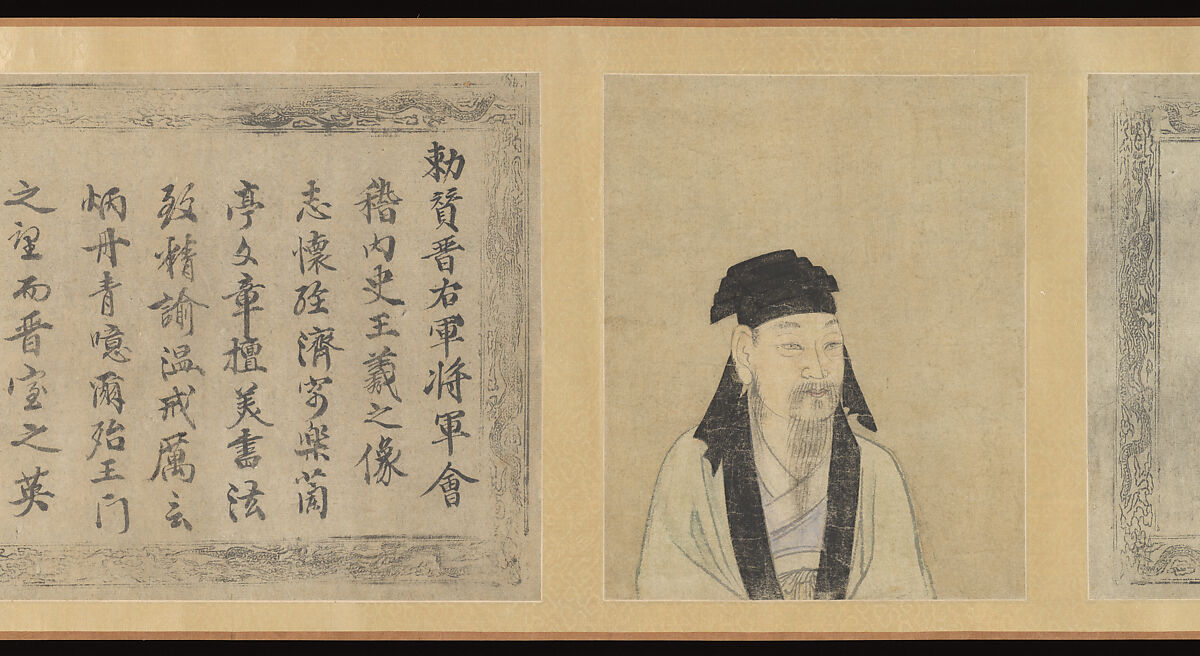 勅賛晋右軍将軍會
稽内史王羲之像
志懷經濟寄樂蘭
亭文章擅美書法
致精諭温戒厲云
炳丹青噫爾殆王门
之望而晋室之英